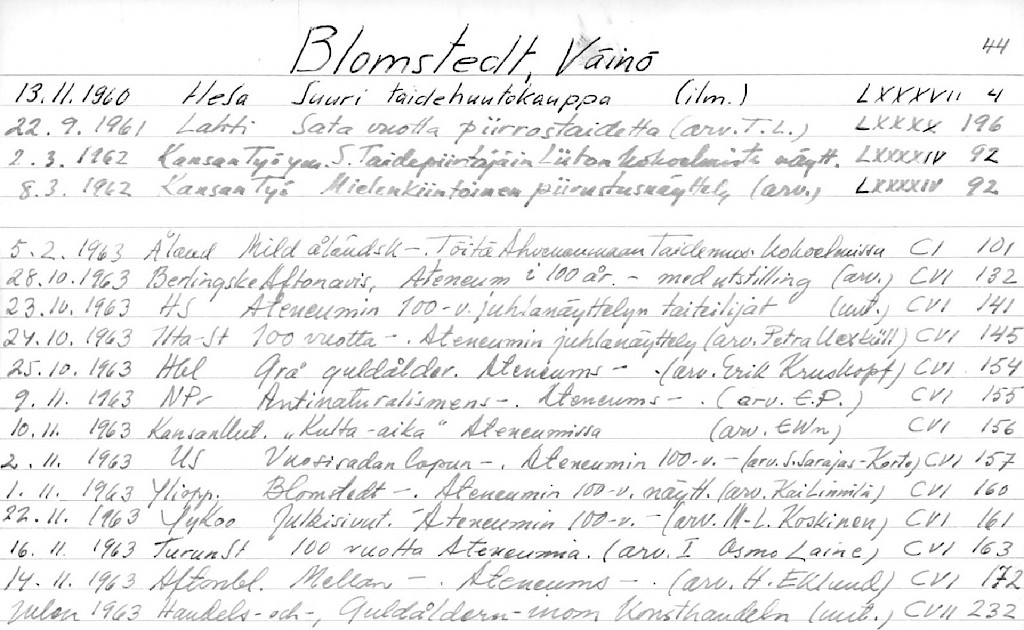 Blomstedt, Väinö 44
13.11.1960 HeSa Suuri taidehuutokauppa (ilm.) LXXXVII 4
22.9.1961 Lahti Sata vuotta piirrostaidetta (arv. T.L.) LXXXX 196
2.3.1962 Kansan Työ ym. S. Taidepiirtäjäin Liiton kokoelmista näytt. LXXXXIV 92
8.3.1962 Kansan Työ Mielenkiintoinen piirustusnäyttely (arv.) LXXXXIV 92
5.2.1963 Åland Mild åländsk -. Töitä Ahvenanmaan Taidemus. kokoelmissa CI 101
28.10.1963 Berlingske Aftonavis, Ateneum i 100 år. - med utstilling (arv.) CVI 132
23.10.1963 HS Ateneumin 100-v. juhlanäyttelyn taiteilijat CVI 141
24.10.1963 Ilta-St 100 vuotta -. Ateneumin juhlanäyttely (arv. Petra Uexküll) CVI 145
25.10.1963 Hbl Grå guldålder. Ateneums - . (arv. Erik Kruskopf) CVI 154
9.11.1963 NPr Antinaturalismens -. Ateneums - . (arv. E.P.) CVI 155
10.11.1963 Kansan Uut. „Kulta-aika" Ateneumissa (arv. EWn) CVI 156
2.11.1963 US Vuosisadan lopun -. Ateneumin 100-v. - (arv. S. Sarajas-Korte) CVI 157
1.11.1963 Yliopp. Blomstedt -. Ateneumin 100-v. näytt. (arv. Kai Linnilä) CVI 160
22.11.1963 JyKoo Julkisivut. Ateneumin 100-v. - (arv. M-L. Koskinen) CVI 161
16.11.1963 TurunSt 100 vuotta Ateneumia. (arv. I Osmo Laine) CVI 163
14.11.1963 Aftonbl. Mellan -. Ateneums - . (arv. H. Eklund) CVI 172
Julen 1963 Handels-och-, Guldåldern inom Konsthandeln CVII 232